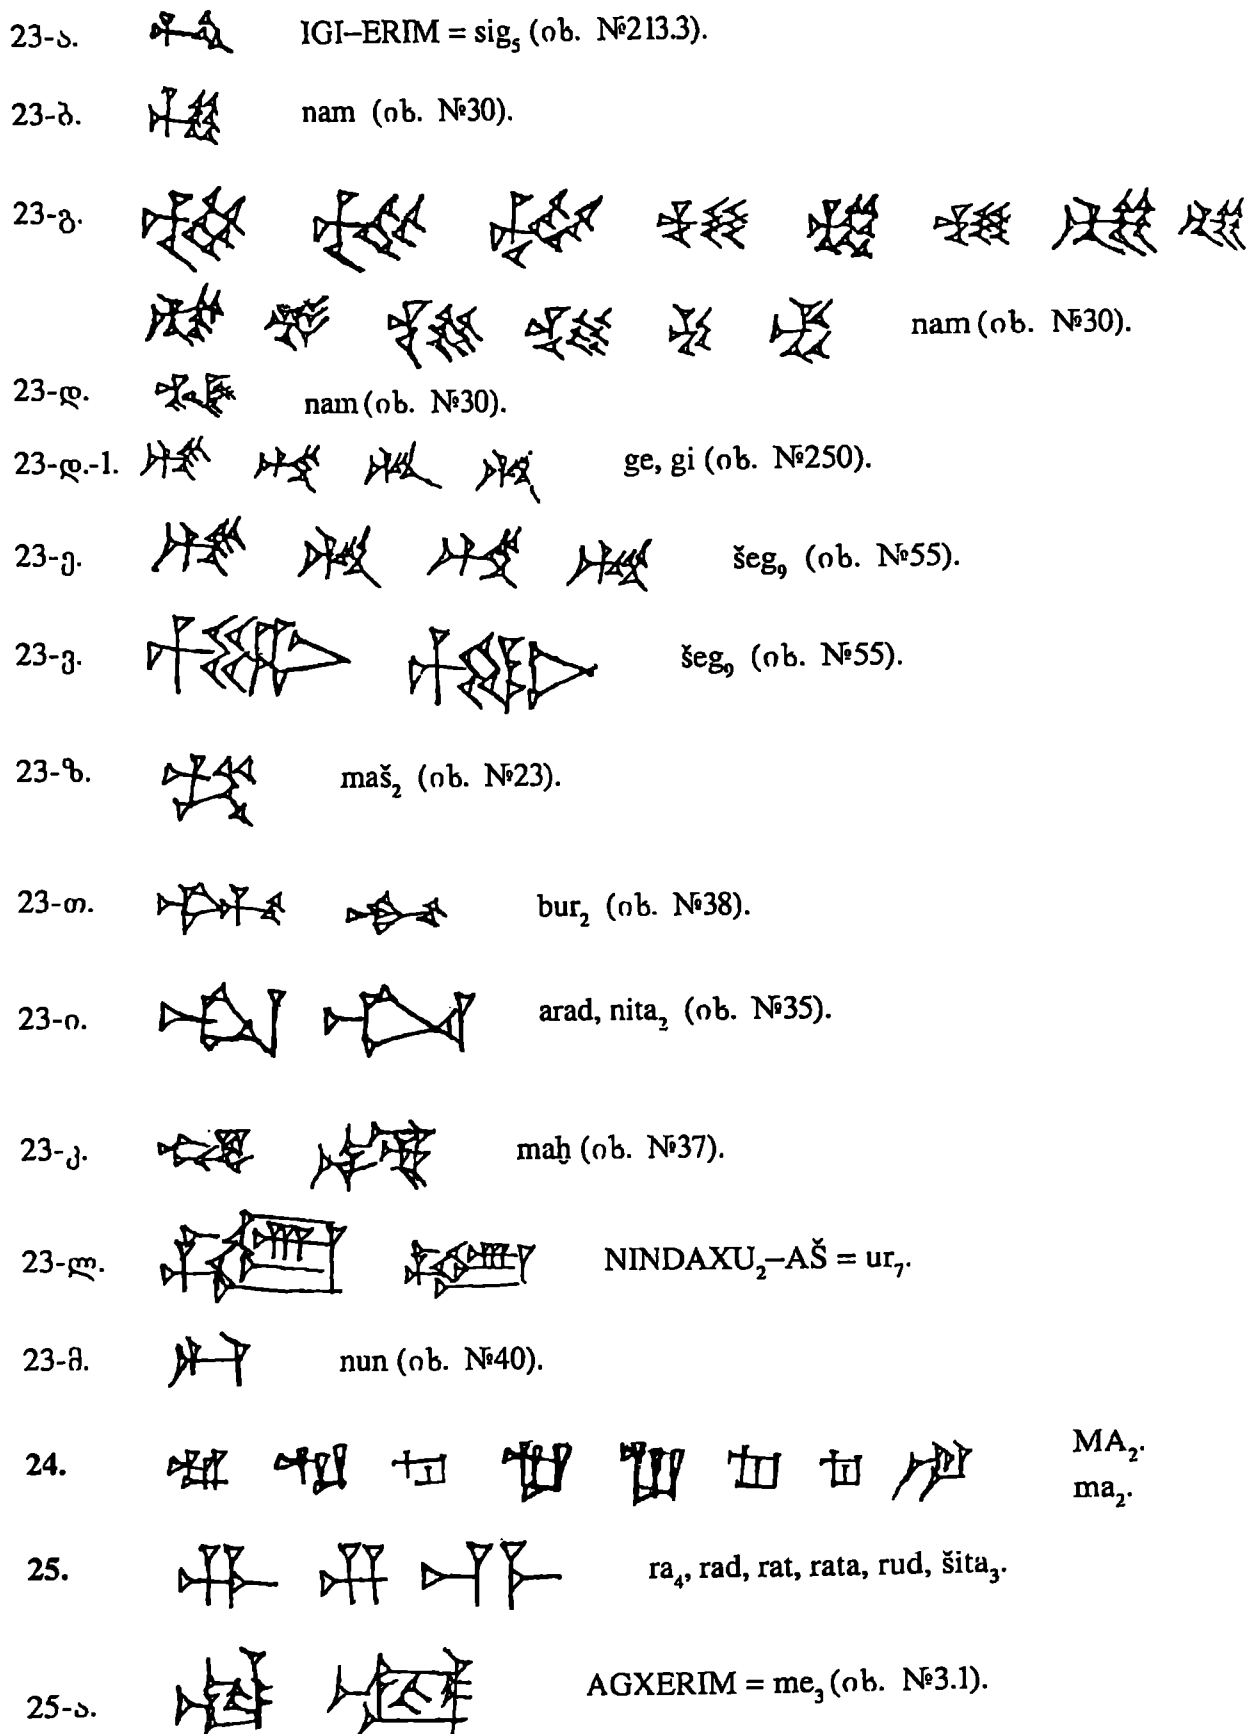 23-ა. IGI–ERIM = sig₅ (იხ. №213.3).
23-ბ. nam (იხ. №30).
23-გ.
nam (იხ. №30).
23-დ. nam (იხ. №30).
23-დ.-1. ge, gi (იხ. №250).
23-ე. šeg₉ (იხ. №55).
23-ვ. šeg₉ (იხ. №55).
23-ზ. maš₂ (იხ. №23).
23-თ. bur₂ (იხ. №38).
23-ი. arad, nita₂ (იხ. №35).
23-კ. maḫ (იხ. №37).
23-ლ. NINDAXU₂–AŠ = ur₇.
23-მ. nun (იხ. №40).
24. MA₂.
ma₂.
25. ra₄, rad, rat, rata, rud, šita₃.
25-ა. AGXERIM = me₃ (იხ. №3.1).